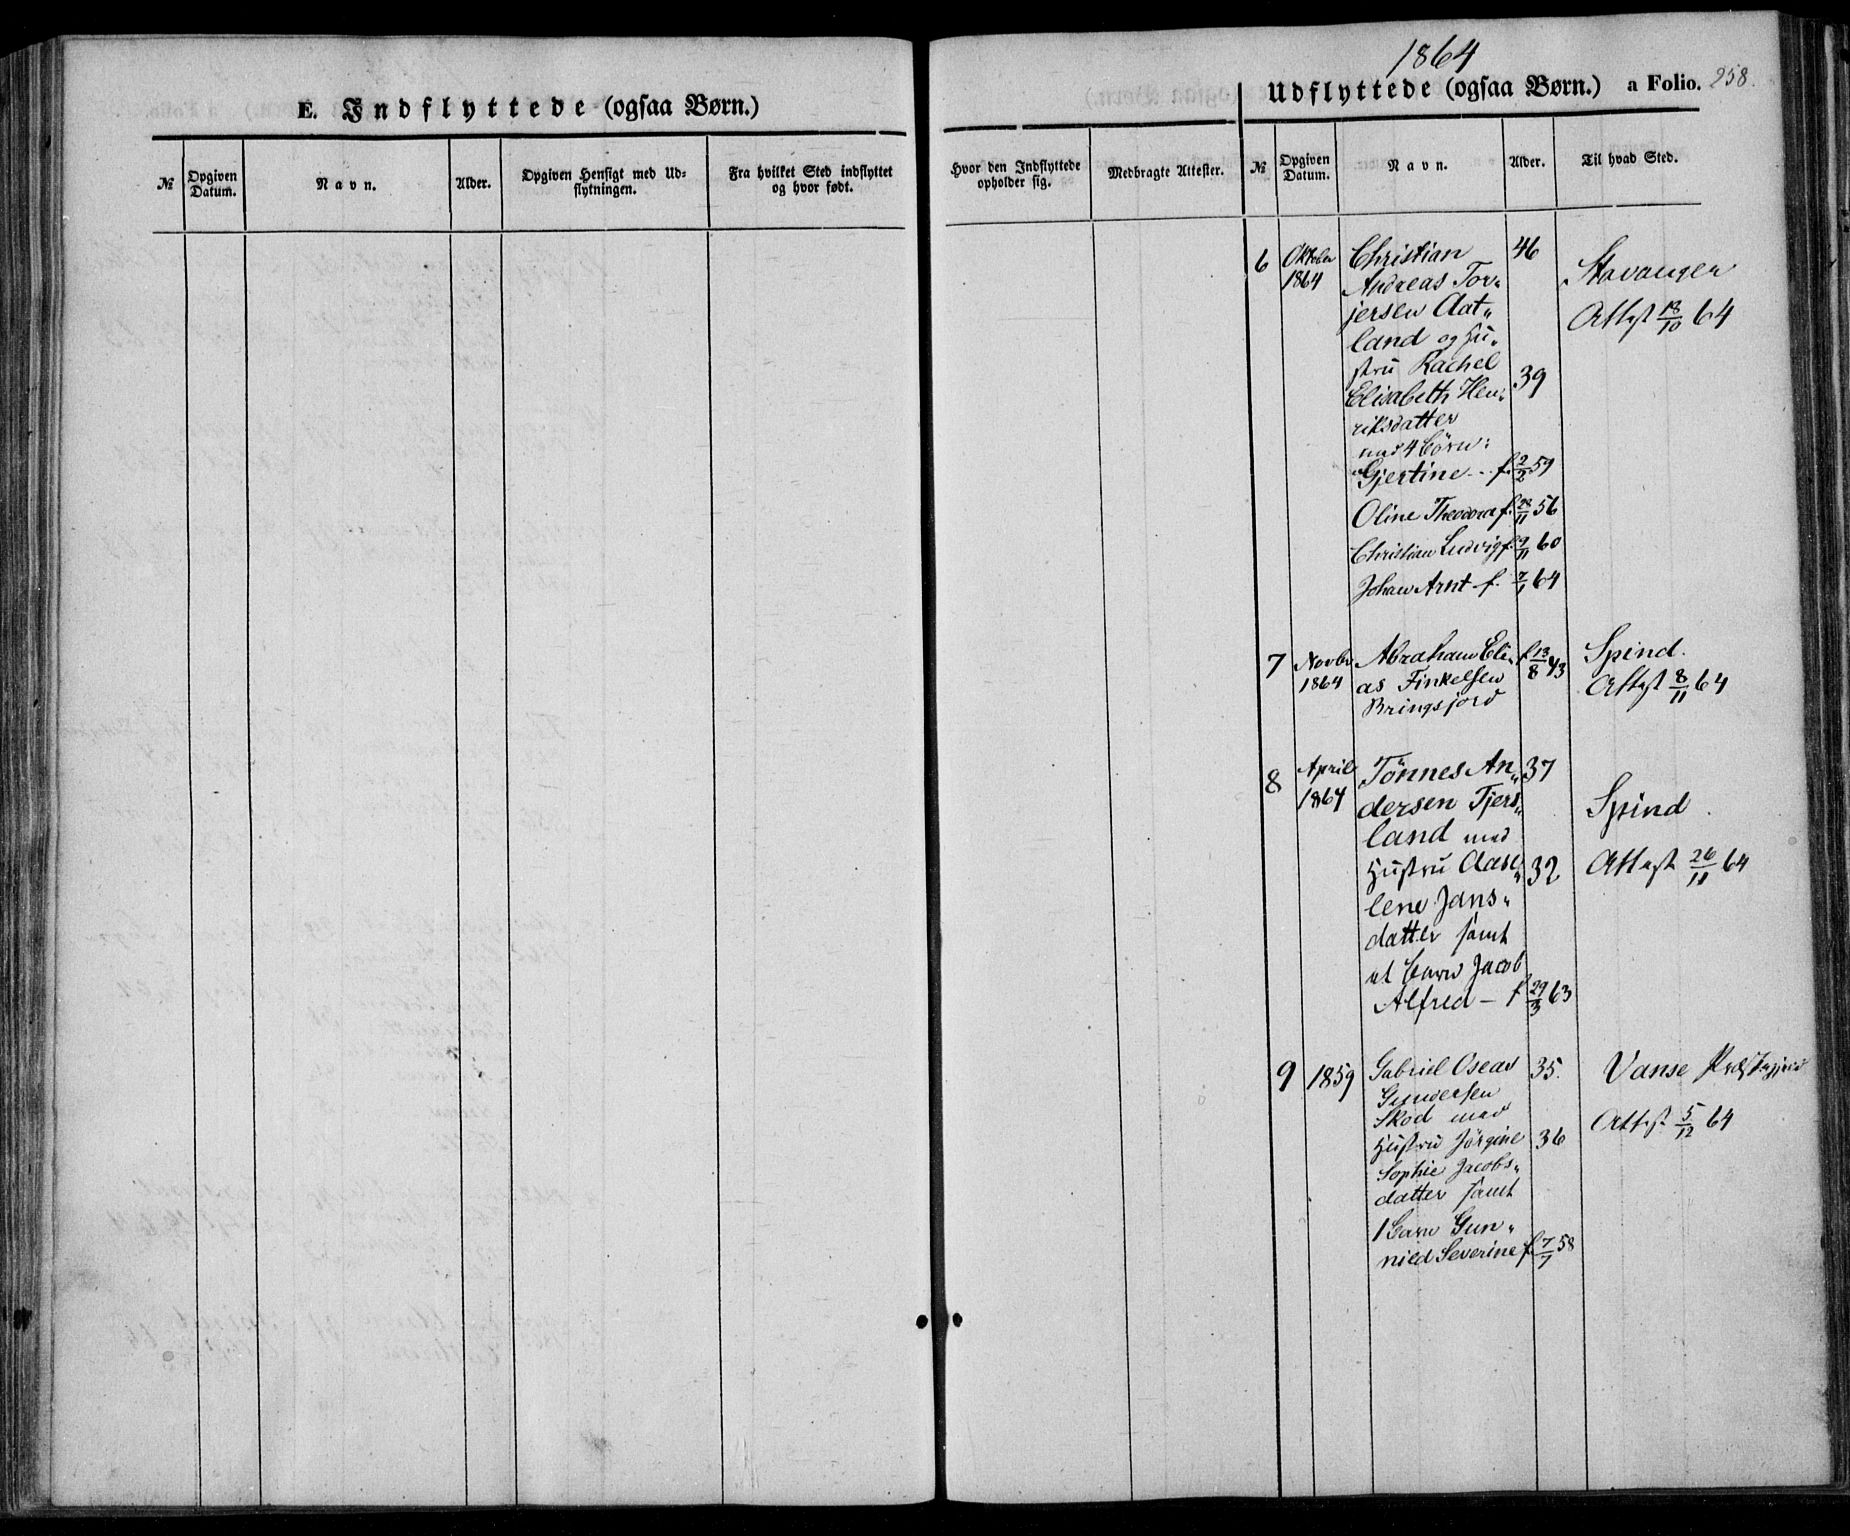 E. Indflyttede (ogsaa Børn.)
№
Opgiven Datum.
Navn.
Alder.
Opgiven Hensigt med Udflytningen.
Fra hvilket Sted indflyttet og hvor født.
Hvor den Indflyttede opholder sig.
Medbragte Attester.
1864
Udflyttede (ogsaa Børn.) a Folio. 258.
№
Opgiven Datum.
Navn.
Alder.
Til hvad Sted.
6 Oktober Christian 46
1864 Andreas Tor- Stavanger
jersen Aat- Attest 13/10 64
land og Hu-
stru Rachel
Elisabeth Hen- 39
riksdatter
med 4 Børn:
Gjertine - - f. 2/2 59
Oline Theodora f. /11 56
Christian Ludvig f. 9/11 60
Johan Arnt f. 7/1 64
7 Novbr Abraham Eli- f 13/8 43 Spind.
1864 as Finkelsen Attest 8/11 64
Bringsjord
8 April Tönnes An- 37
1864 dersen Tjers- Spind.
land med
Hustru Aase- 32 Attest 26/11 64
lene Jans-
datter samt
et Barn Jacob
Alfred - f 29/3 63
9 1859 Gabriel Osear 35. Vanse Præstegjeld
Gundersen
Skod med Attest 5/12 64
Hustru Jörgine 36
Sophie Jacobs-
datter samt
1 Barn Gun-
nild Severine f. 7/7 58